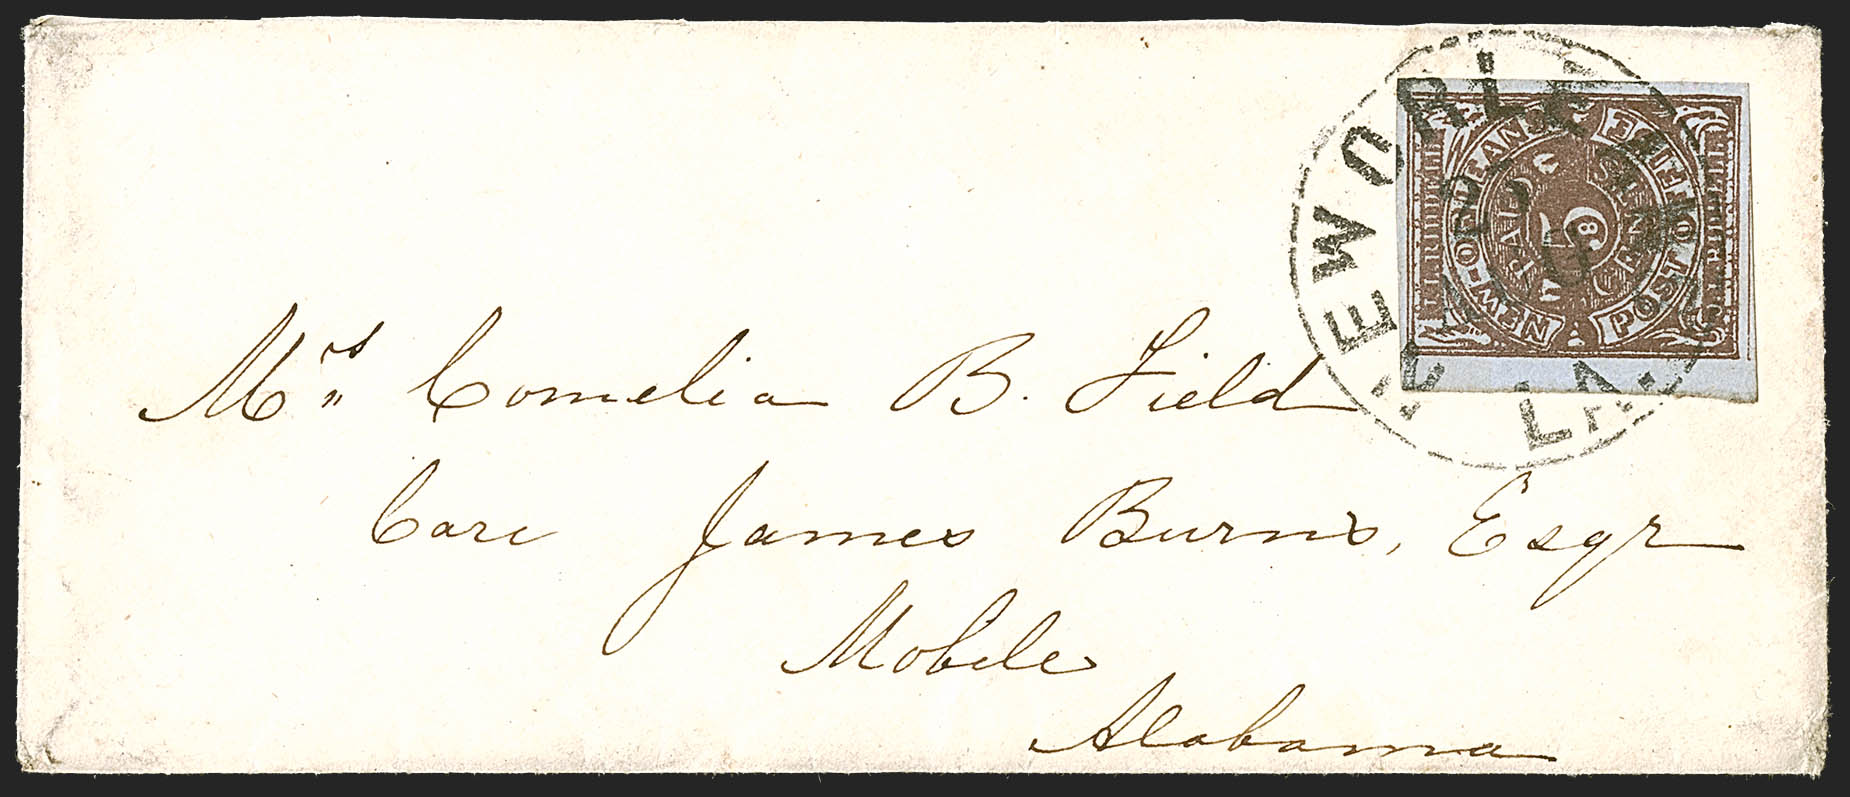 NEW ORLEANS
LA.
J. L. RIDDELL
NEW-ORLEANS
POST OFFICE
PAID
5
CENTS
Mrs Cornelia B. Field
Care James Burns, Esqr
Mobile
Alabama